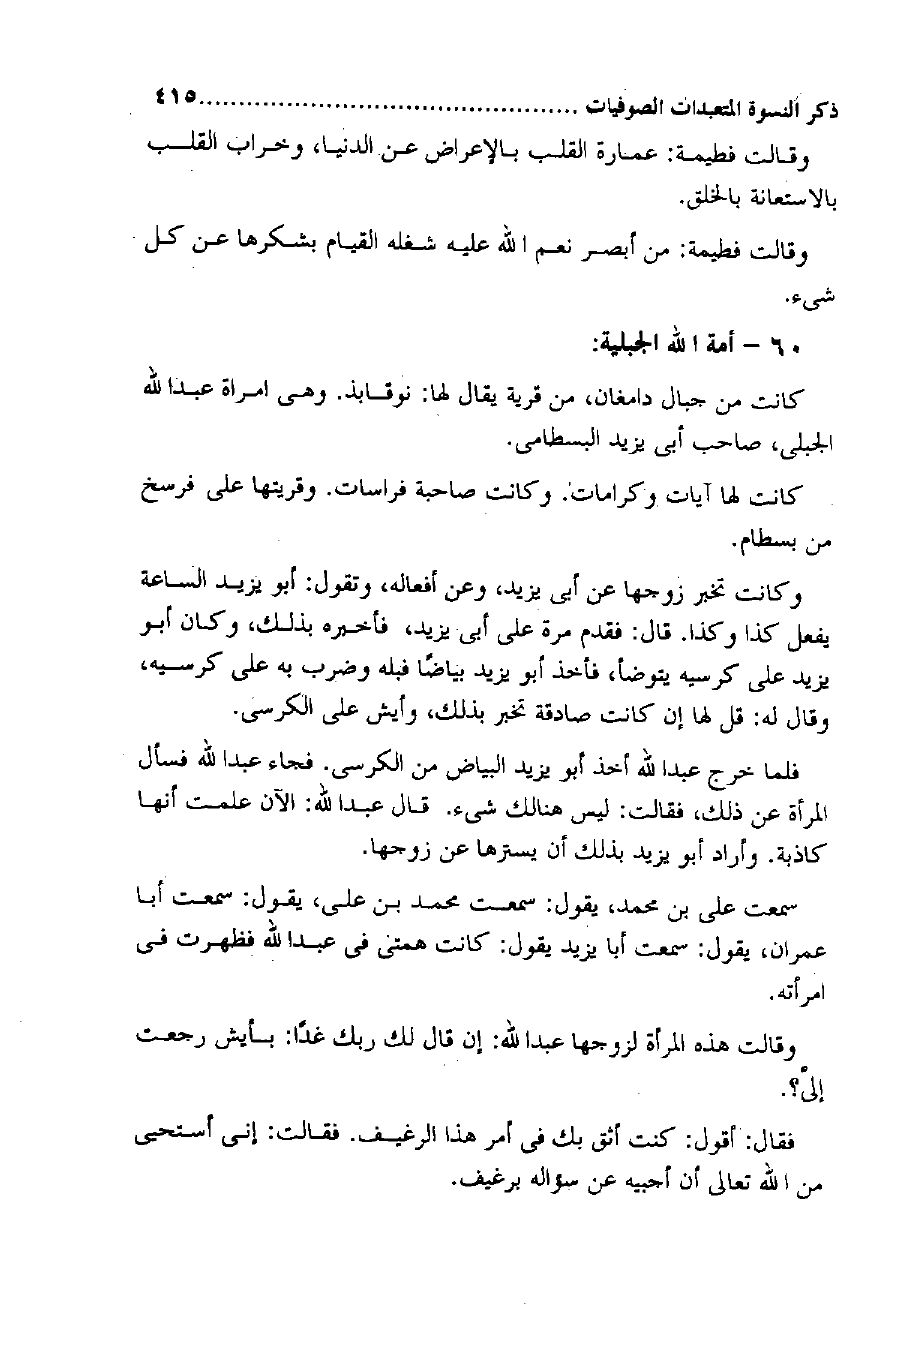 ذكر النسوة المتعبدات الصوفيات .......................................... ٤١٥
وقالت فطيمة: عمارة القلب بالإعراض عن الدنيا، وخراب القلب
بالاستعانة بالخلق.
وقالت فطيمة: من أبصر نعم الله عليه شغله القيام بشكرها عن كل
شىء.
٦٠ – أمة الله الجبلية:
كانت من جبال دامغان، من قرية يقال لها: نوقابذ. وهى امراة عبدالله
الجبلى، صاحب أبى يزيد البسطامى.
كانت لها آيات وكرامات. وكانت صاحبة فراسات. وقريتها على فرسخ
من بسطام.
وكانت تخبر زوجها عن أبى يزيد، وعن أفعاله، وتقول: أبو يزيد الساعة
يفعل كذا وكذا. قال: فقدم مرة على أبى يزيد، فأخبره بذلك، وكان أبو
يزيد على كرسيه يتوضأ، فأخذ أبو يزيد بياضًا فبله وضرب به على كرسيه،
وقال له: قل لها إن كانت صادقة تخبر بذلك، وأيش على الكرسى.
فلما خرج عبدالله أخذ أبو يزيد البياض من الكرسى. فجاء عبدالله فسأل
المرأة عن ذلك، فقالت: ليس هنالك شىء. قال عبدالله: الآن علمت أنها
كاذبة. وأراد أبو يزيد بذلك أن يسترها عن زوجها.
سمعت على بن محمد، يقول: سمعت محمد بن على، يقول: سمعت أبا
عمران، يقول: سمعت أبا يزيد يقول: كانت همتى فى عبدالله فظهرت فى
امرأته.
وقالت هذه المرأة لزوجها عبدالله: إن قال لك ربك غدًا: بأيش رجعت
إلىَّ؟.
فقال: أقول: كنت أثق بك فى أمر هذا الرغيف. فقالت: إنى أستحيى
من الله تعالى أن أجيبه عن سؤاله برغيف.